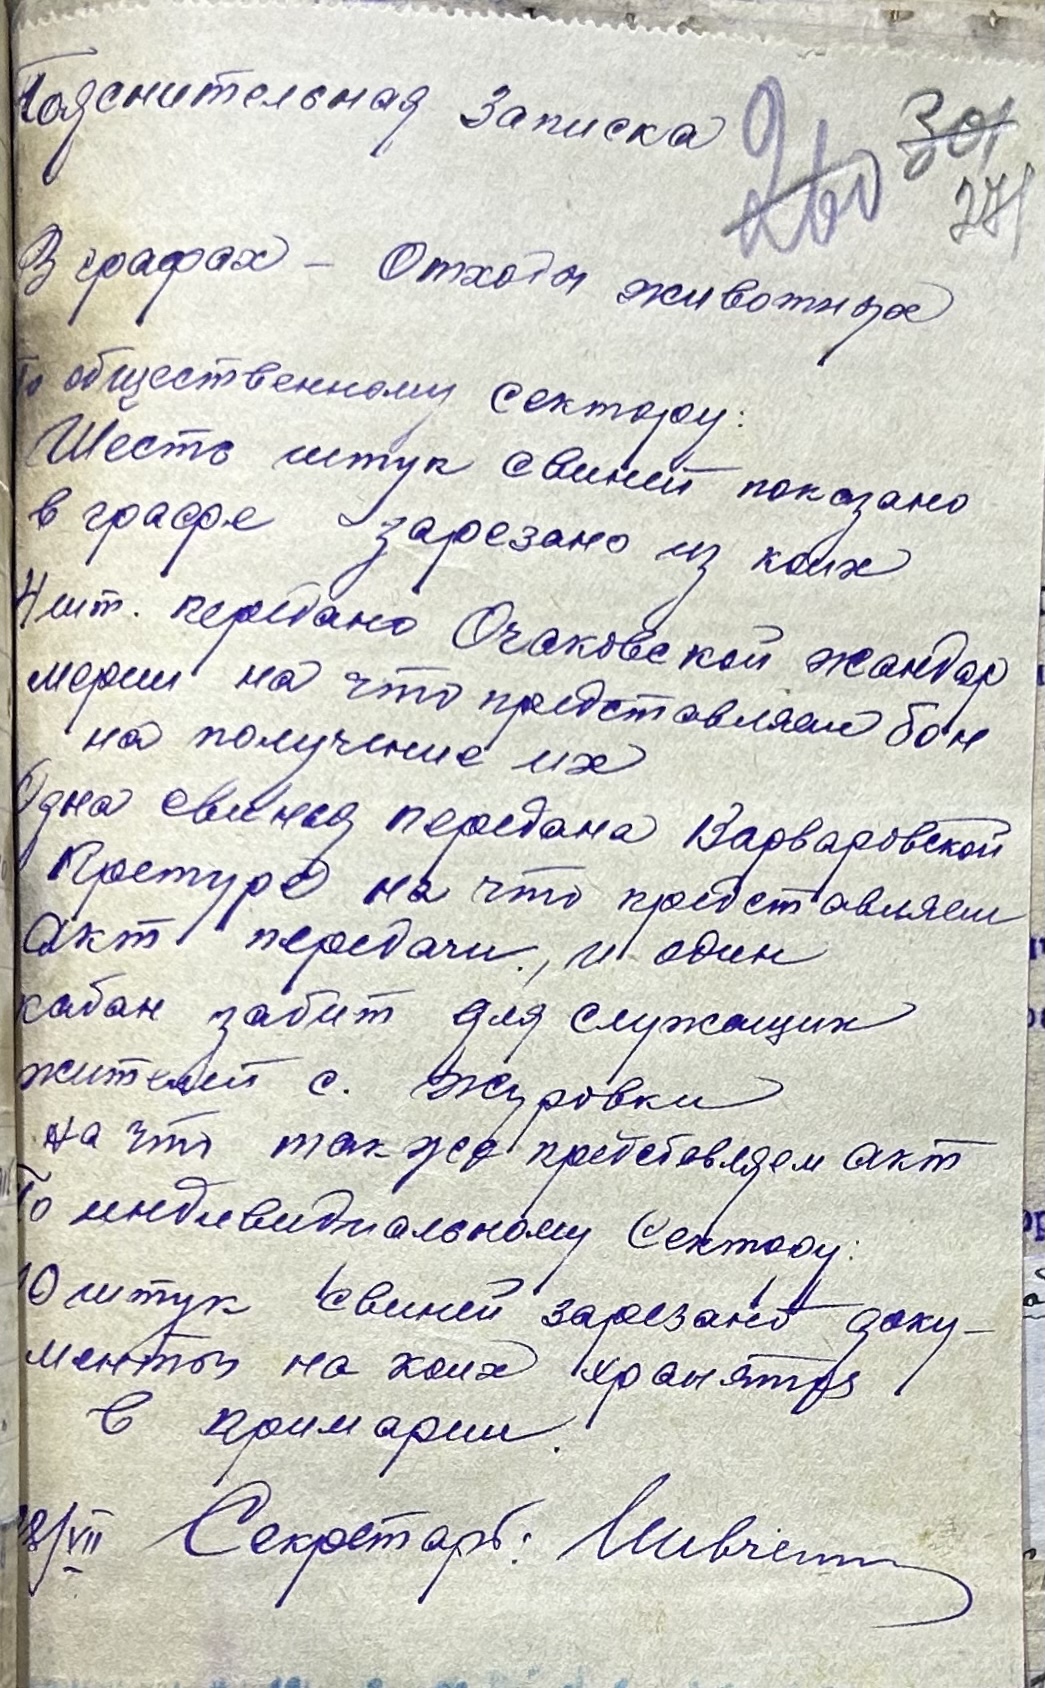 Пояснительная записка
260 301
271
В графах – Отходы животных
По общественному сектору:
Шесть штук свиней показано
в графе зарезано из коих
4 шт. передано Очаковской жандар
мерии на что представляем бон
на получение их
Одна свинья передана Варваровской
Претуре на что представляем
Акт передачи, и один
кабан забит для служащих
жителей с. Журовки
на что также представляем акт
По индивидиальному сектору:
10 штук свиней зарезано доку-
менты на коих хранятся
в примарии.
/VII Секретарь: